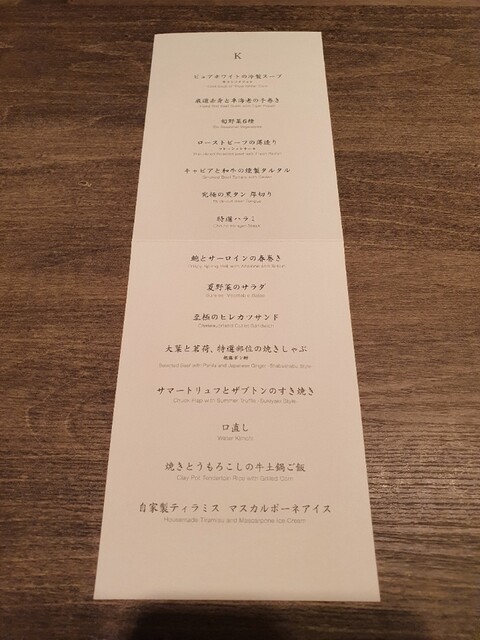 K
ピュアホワイトの冷製スープ
厳選赤身と車海老の手巻き
旬野菜6種
ローストビーフの薄造り
キャビアと和牛の燻製タルタル
究極の黒タン 厚切り
特選ハラミ
鮑とサーロインの春巻き
夏野菜のサラダ
Summer Vegetable Salad
至極のヒレカツサンド
大葉と茗荷、特選部位の焼きしゃぶ
Selected Beef with Perilla and Japanese Ginger "Shabushabu" Style
サマートリュフとザブトンのすき焼き
Chuck Flap with Summer Truffle "Sukiyaki" Style
口直し
Water Kimchi
焼きとうもろこしの牛土鍋ご飯
Clay Pot Tenderloin Rice with Grilled Corn
自家製ティラミス マスカルポーネアイス
Housemade Tiramisu and Mascarpone Ice Cream